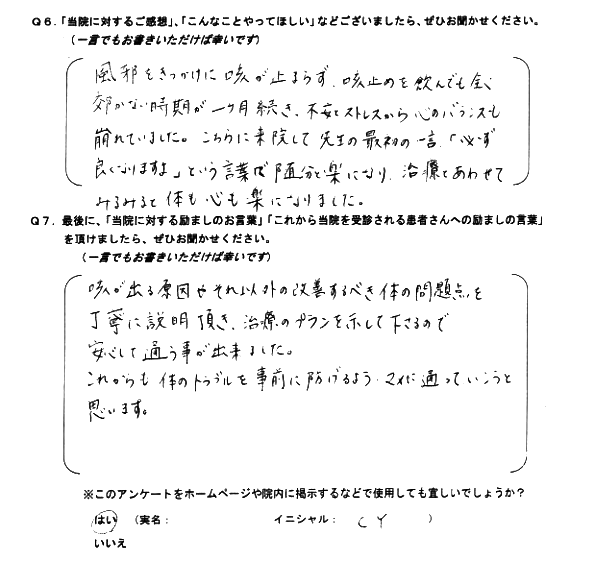 Q6.「当院に対するご感想」、「こんなことやってほしい」などございましたら、ぜひお聞かせください。
(一言でもお書きいただけば幸いです)
風邪をきっかけに咳が止まらず、咳止めを飲んでも全く
効かない時期が一ヶ月続き、不安とストレスから心のバランスも
崩れていました。こちらに来院して先生の最初の一言、「必ず
良くなりますよ」という言葉で随分と楽になり、治療とあわせて
みるみると体も心も楽になりました。
Q7.最後に、「当院に対する励ましのお言葉」「これから当院を受診される患者さんへの励ましの言葉」
を頂けましたら、ぜひお聞かせください。
(一言でもお書きいただけば幸いです)
咳が出る原因やそれ以外の改善するべき体の問題点を
丁寧に説明頂き、治療のプランを示して下さるので
安心して通う事が出来ました。
これからも体のトラブルを事前に防げるよう、マメに通っていこうと
思います。
※このアンケートをホームページや院内に掲示するなどで使用しても宜しいでしょうか?
はい (実名: イニシャル: C Y )
いいえ